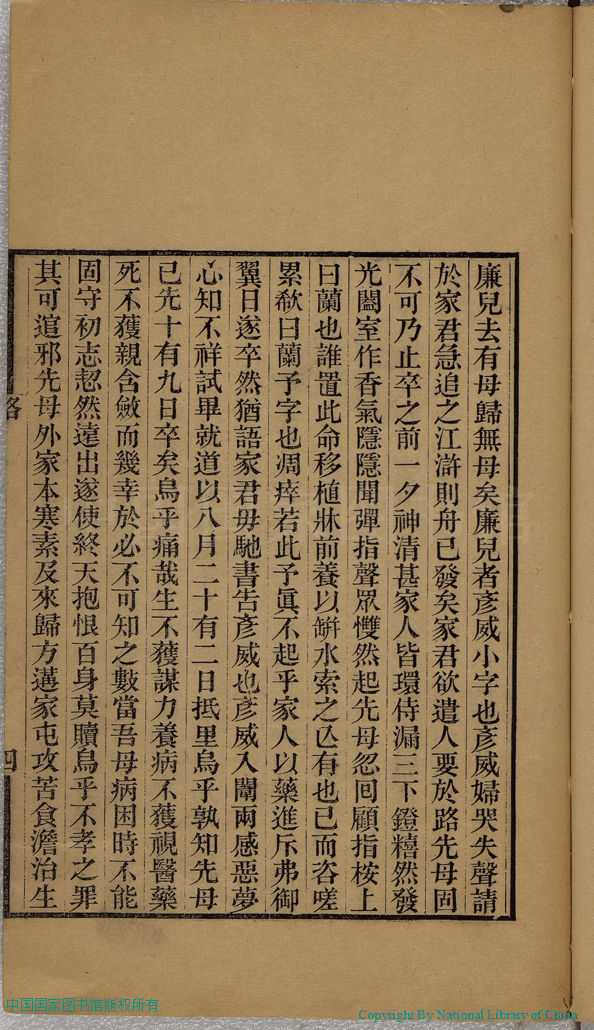 廉兒去有母歸無母矣廉兒者彥威小字也彥威婦哭失聲請
於家君急追之江滸則舟已發矣家君欲遣人要於路先母固
不可乃止卒之前一夕神清甚家人皆環侍漏三下鐙糦然發
光闔室作香氣隱隱聞彈指聲眾戄然起先母忽回顧指桉上
曰蘭也誰置此命移植牀前養以缾水索之亾有也已而咨嗟
累欷曰蘭予字也凋瘁若此予眞不起乎家人以藥進斥弗御
翼日遂卒然猶語家君毋馳書告彥威也彥威入闈兩感惡夢
心知不祥試畢就道以八月二十有二日抵里烏乎孰知先母
已先十有九日卒矣烏乎痛哉生不獲謀力養病不獲視醫藥
死不獲親含斂而幾幸於必不可知之數當吾母病困時不能
固守初志恝然遠出遂使終天抱恨百身莫贖烏乎不孝之罪
其可逭邪先母外家本寒素及來歸方遘家屯攻苦食澹治生
略
四
中国国家图书馆版权所有
Copyright By National Library of China